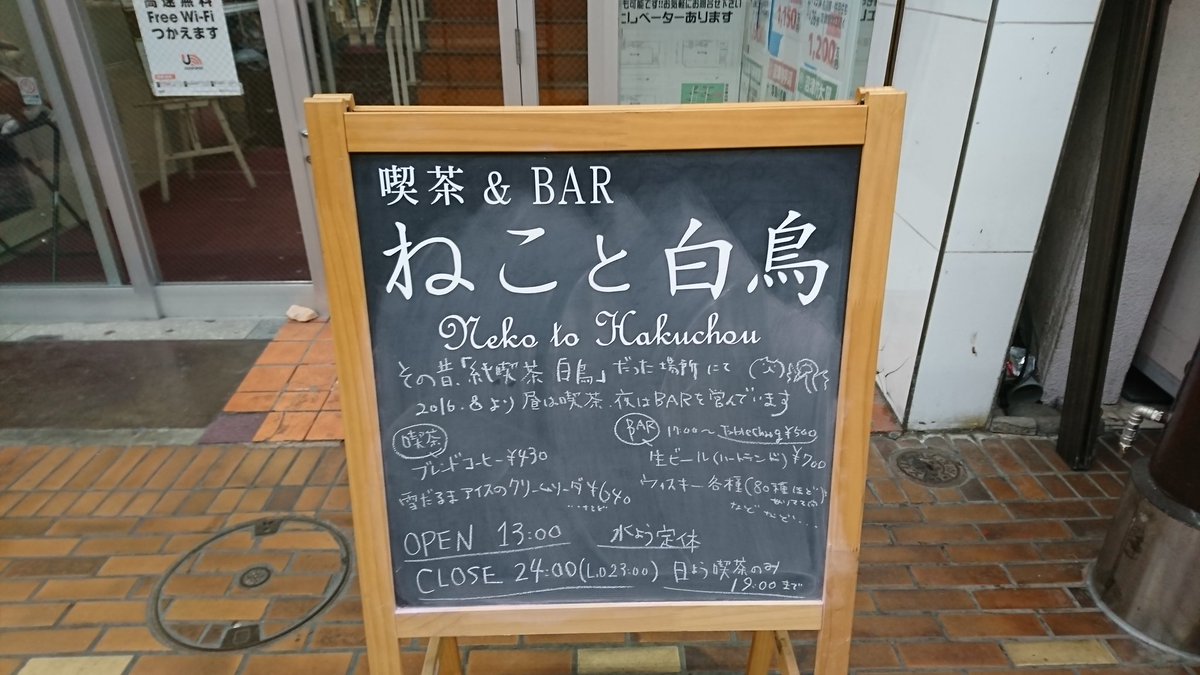 高速無料
Free Wi-Fi
つかえます
も可能です!!お気軽にお問合せ下さい
エレベーターあります
1,200
喫茶 & BAR
ねこと白鳥
Neko to Hakuchou
その昔、「純喫茶 白鳥」だった場所にて
2016.8より 昼は喫茶、夜はBARを営んでいます
喫茶
ブレンドコーヒー ¥430
雪だるまアイスのクリームソーダ ¥640
...など
BAR 17:00〜 Tablecharg ¥500
生ビール(ハートランド) ¥700
ウィスキー各種(80種ほど)
などなど...
OPEN 13:00 水よう定休
CLOSE 24:00(L.O23:00) 日よう喫茶のみ
19:00まで